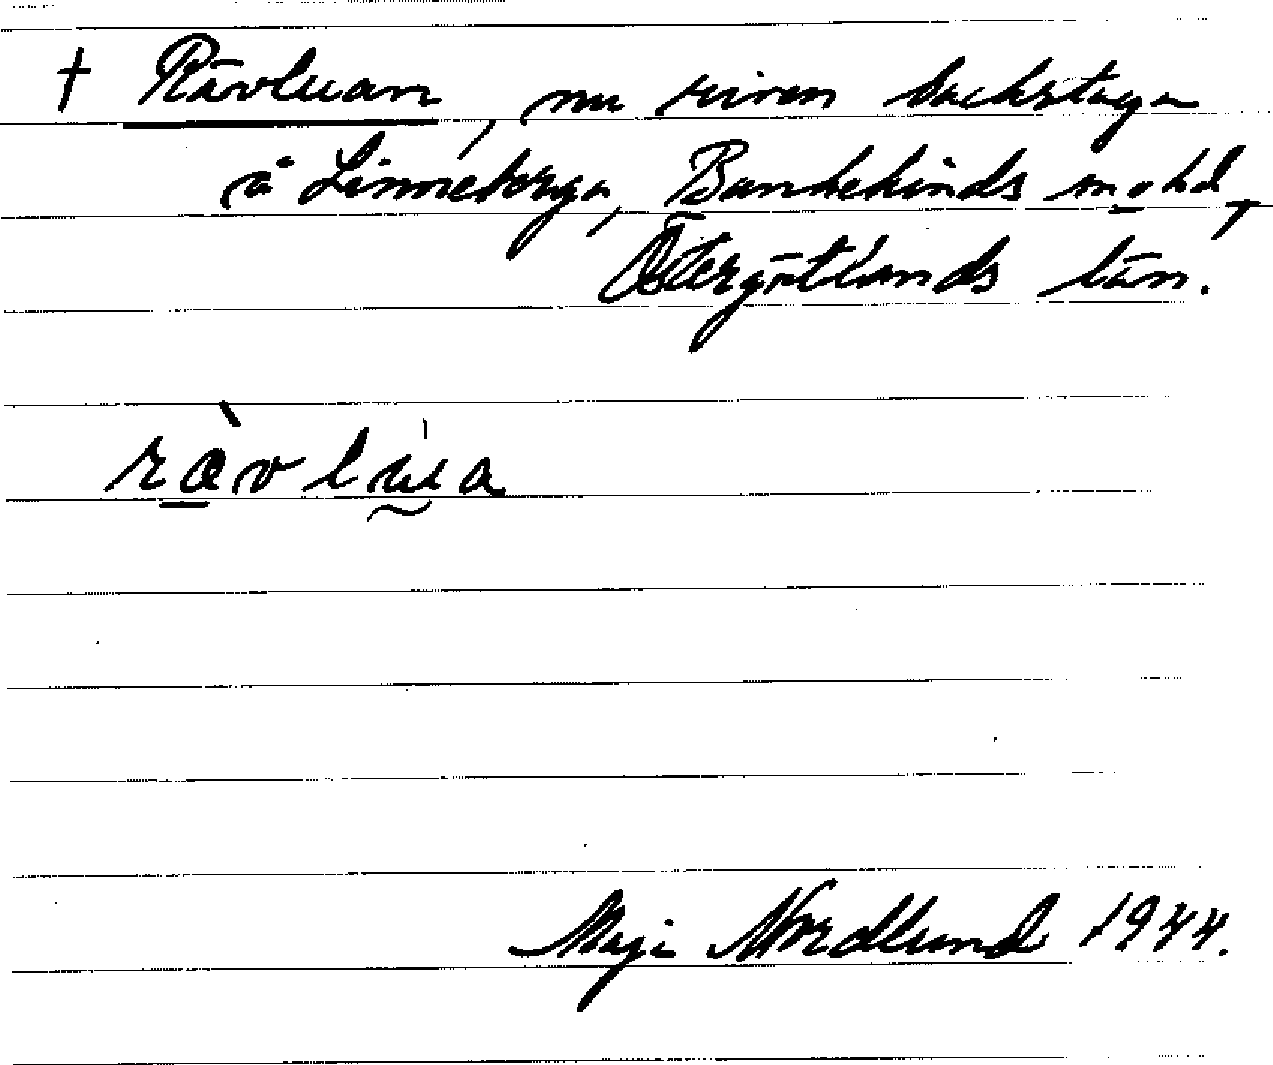 † Rävluan, nu riven backstuga
å Linneberga, Bankekinds sn o hd,
Östergötlands län.
rävlua
Maja Nordlund 1944.